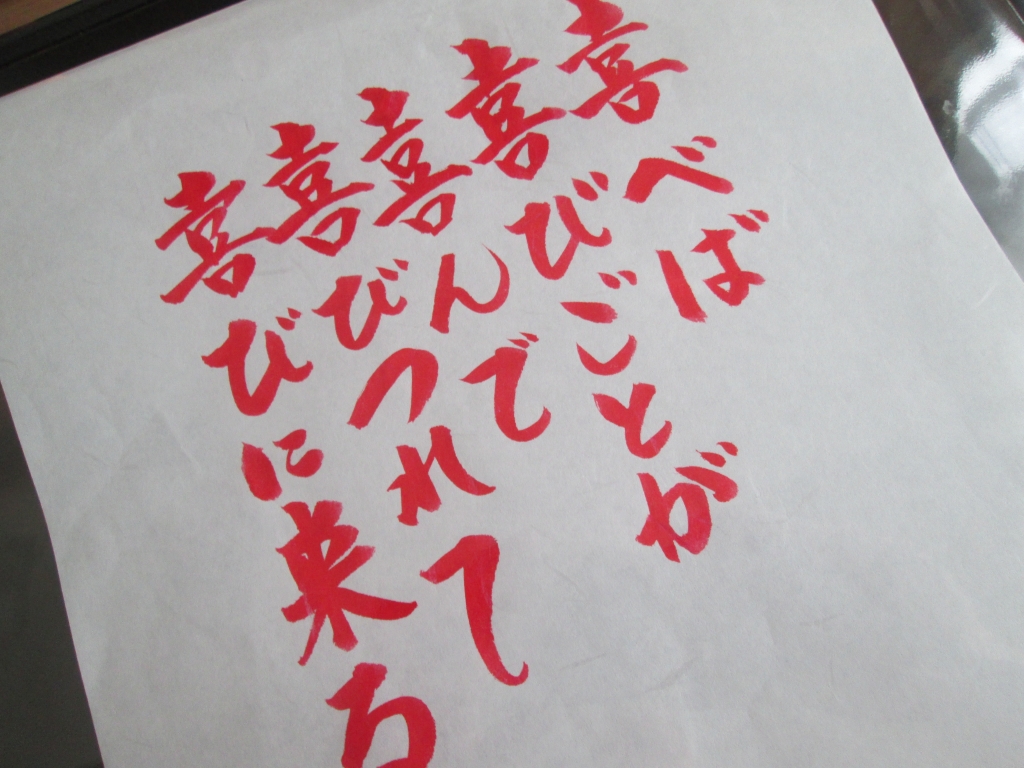 喜べば
喜びごとが
喜んで
喜びつれて
喜びに来る